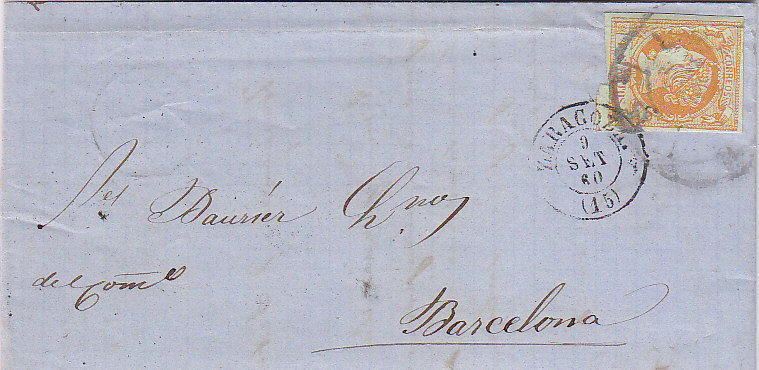 CORREOS
ZARAGOZA
9
SET
60
(15)
Sres Daurier Hnos
del Comº
Barcelona